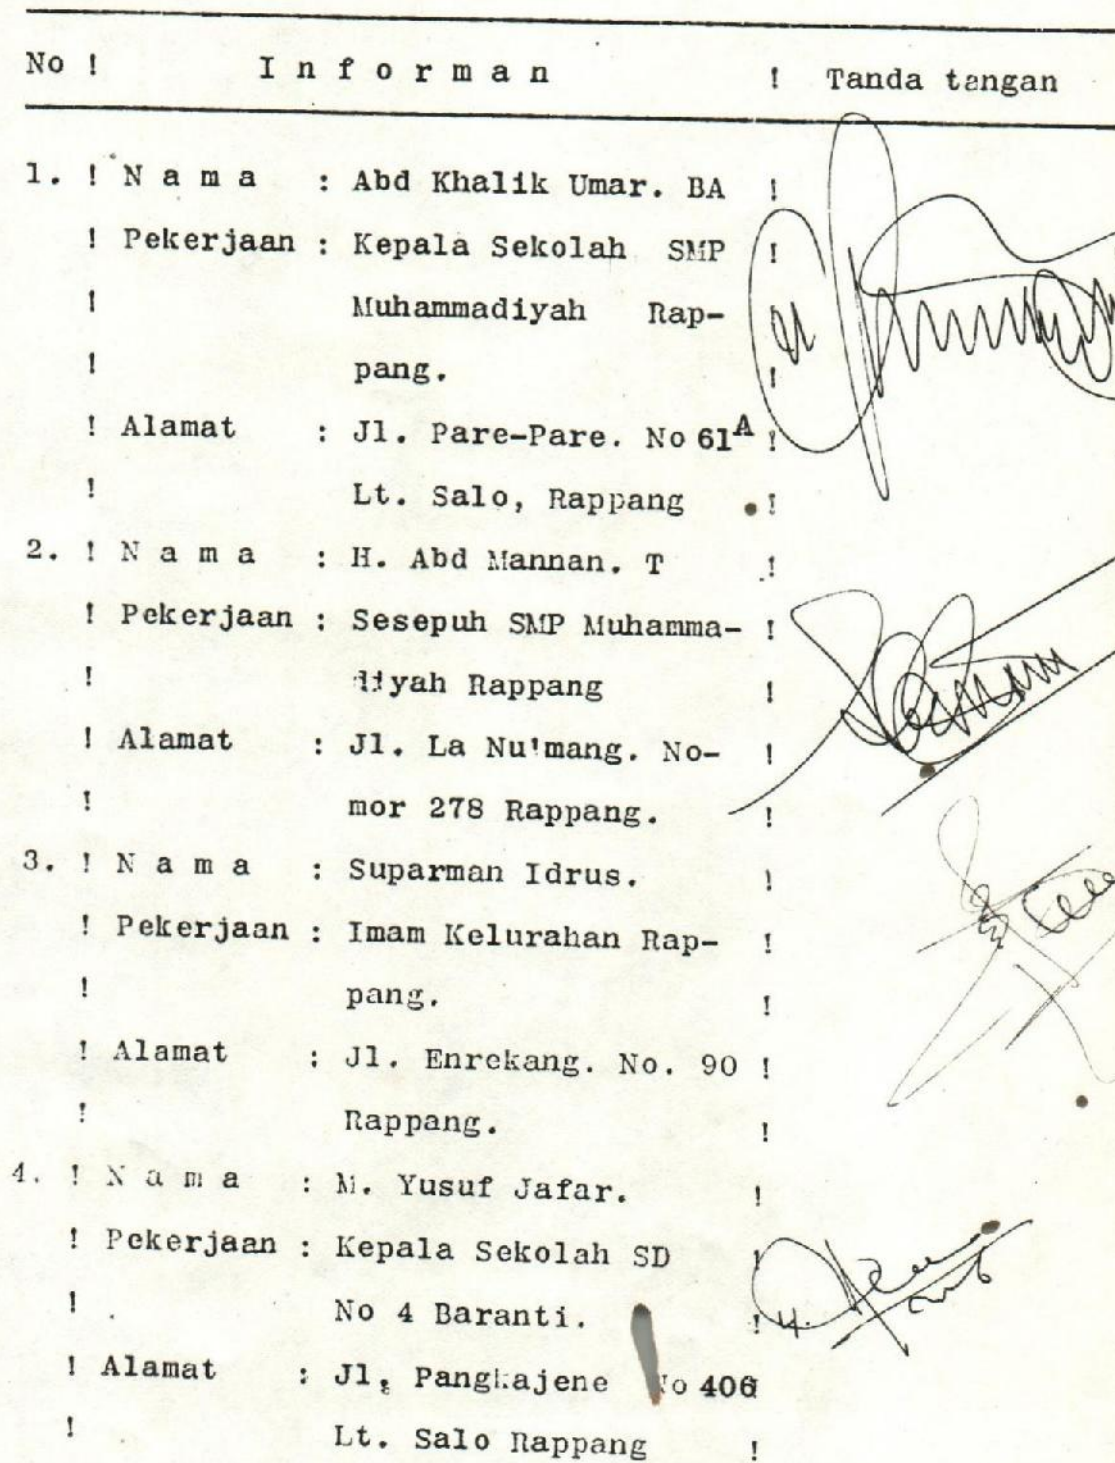 No ! I n f o r m a n ! Tanda tangan
1. ! N a m a : Abd Khalik Umar. BA !
! Pekerjaan : Kepala Sekolah SMP !
! Muhammadiyah Rap-
! pang. !
! Alamat : Jl. Pare-Pare. No 61A !
! Lt. Salo, Rappang !
2. ! N a m a : H. Abd Mannan. T !
! Pekerjaan : Sesepuh SMP Muhamma- !
! diyah Rappang !
! Alamat : Jl. La Nu'mang. No- !
! mor 278 Rappang. !
3. ! N a m a : Suparman Idrus. !
! Pekerjaan : Imam Kelurahan Rap- !
! pang. !
! Alamat : Jl. Enrekang. No. 90 !
! Rappang. !
4. ! N a m a : M. Yusuf Jafar. !
! Pekerjaan : Kepala Sekolah SD !
! No 4 Baranti. !
! Alamat : Jl, Pangkajene No 406
! Lt. Salo Rappang !